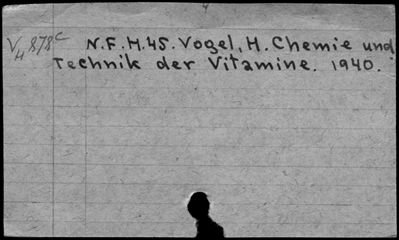 V H 878c N.F.M.45. Vogel, H. Chemie und
Technik der Vitamine. 1940.